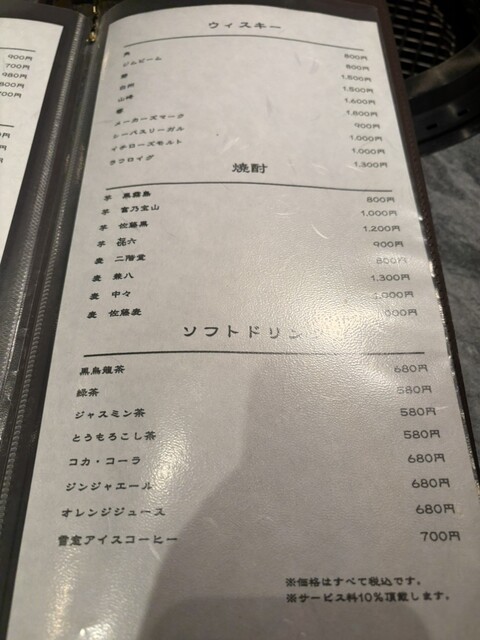 900円
700円
980円
800円
700円
円
円
円
ウィスキー
角 800円
ジムビーム 800円
響 1,500円
白州 1,500円
山崎 1,600円
1,800円
メーカーズマーク 900円
シーバスリーガル 1,000円
イチローズモルト 1,000円
ラフロイグ 1,300円
焼酎
芋 黒霧島 800円
芋 富乃宝山 1,000円
芋 佐藤黒 1,200円
芋 㐂六 900円
麦 二階堂 800円
麦 兼八 1,300円
麦 中々 1,000円
麦 佐藤麦 000円
ソフトドリンク
黒烏龍茶 680円
緑茶 580円
ジャスミン茶 580円
とうもろこし茶 580円
コカ・コーラ 680円
ジンジャエール 680円
オレンジジュース 680円
雪室アイスコーヒー 700円
※価格はすべて税込です。
※サービス料10%頂戴します。